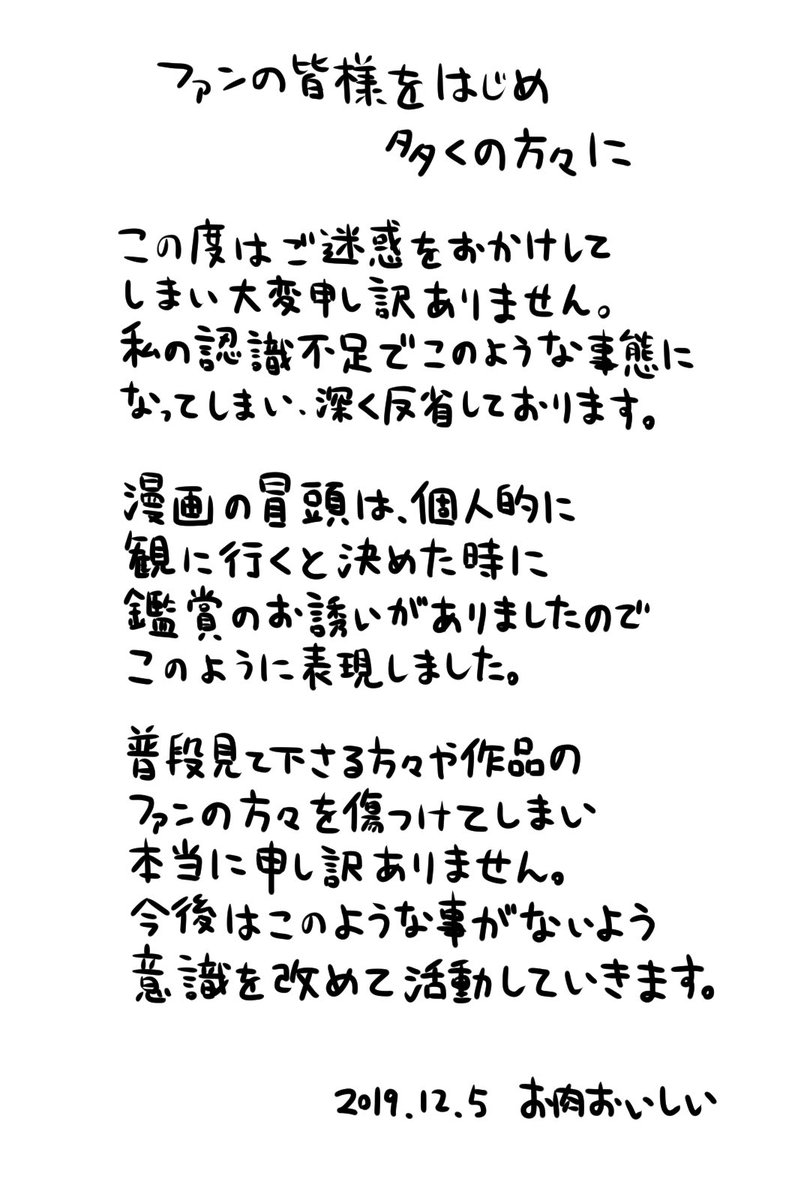 ファンの皆様をはじめ
多くの方々に
この度はご迷惑をおかけして
しまい大変申し訳ありません。
私の認識不足でこのような事態に
なってしまい、深く反省しております。
漫画の冒頭は、個人的に
観に行くと決めた時に
鑑賞のお誘いがありましたので
このように表現しました。
普段見て下さる方々や作品の
ファンの方々を傷つけてしまい
本当に申し訳ありません。
今後はこのような事がないよう
意識を改めて活動していきます。
2019.12.5 お肉おいしい